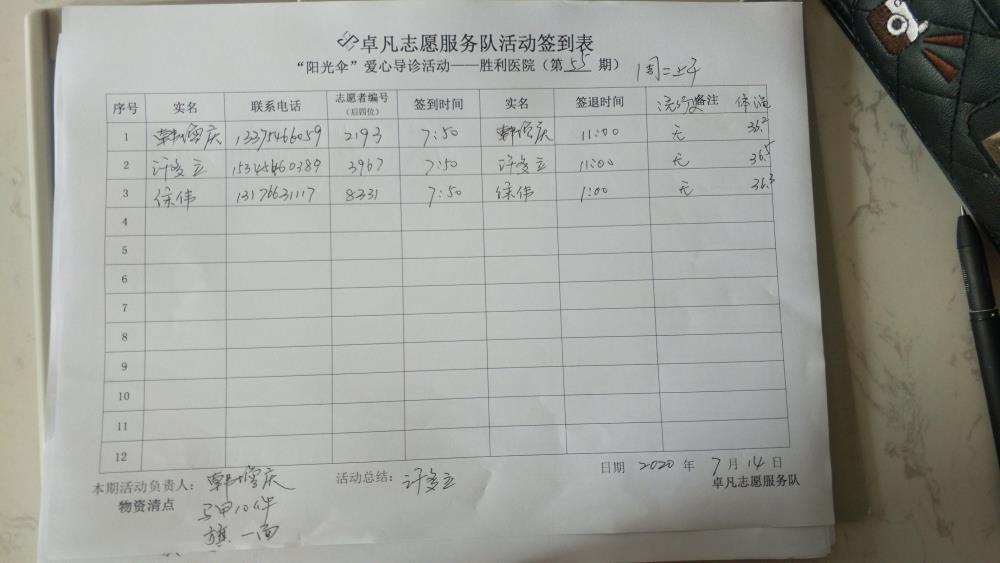 卓凡志愿服务队活动签到表
“阳光伞”爱心导诊活动——胜利医院（第 55 期） 周二上午
序号 实名 联系电话 志愿者编号（后四位） 签到时间 实名 签退时间 备注 体温
1 韩增庆 13375466059 2193 7:50 韩增庆 11:00 无 36.2
2 许多立 15345460389 3967 7:50 许多立 11:00 无 36.5
3 徐伟 13176631117 8331 7:50 徐伟 1:00 无 36.3
4
5
6
7
8
9
10
11
12
日期 2020 年 7 月 14 日
本期活动负责人： 韩增庆 活动总结： 许多立 卓凡志愿服务队
物资清点 马甲10件
旗一面